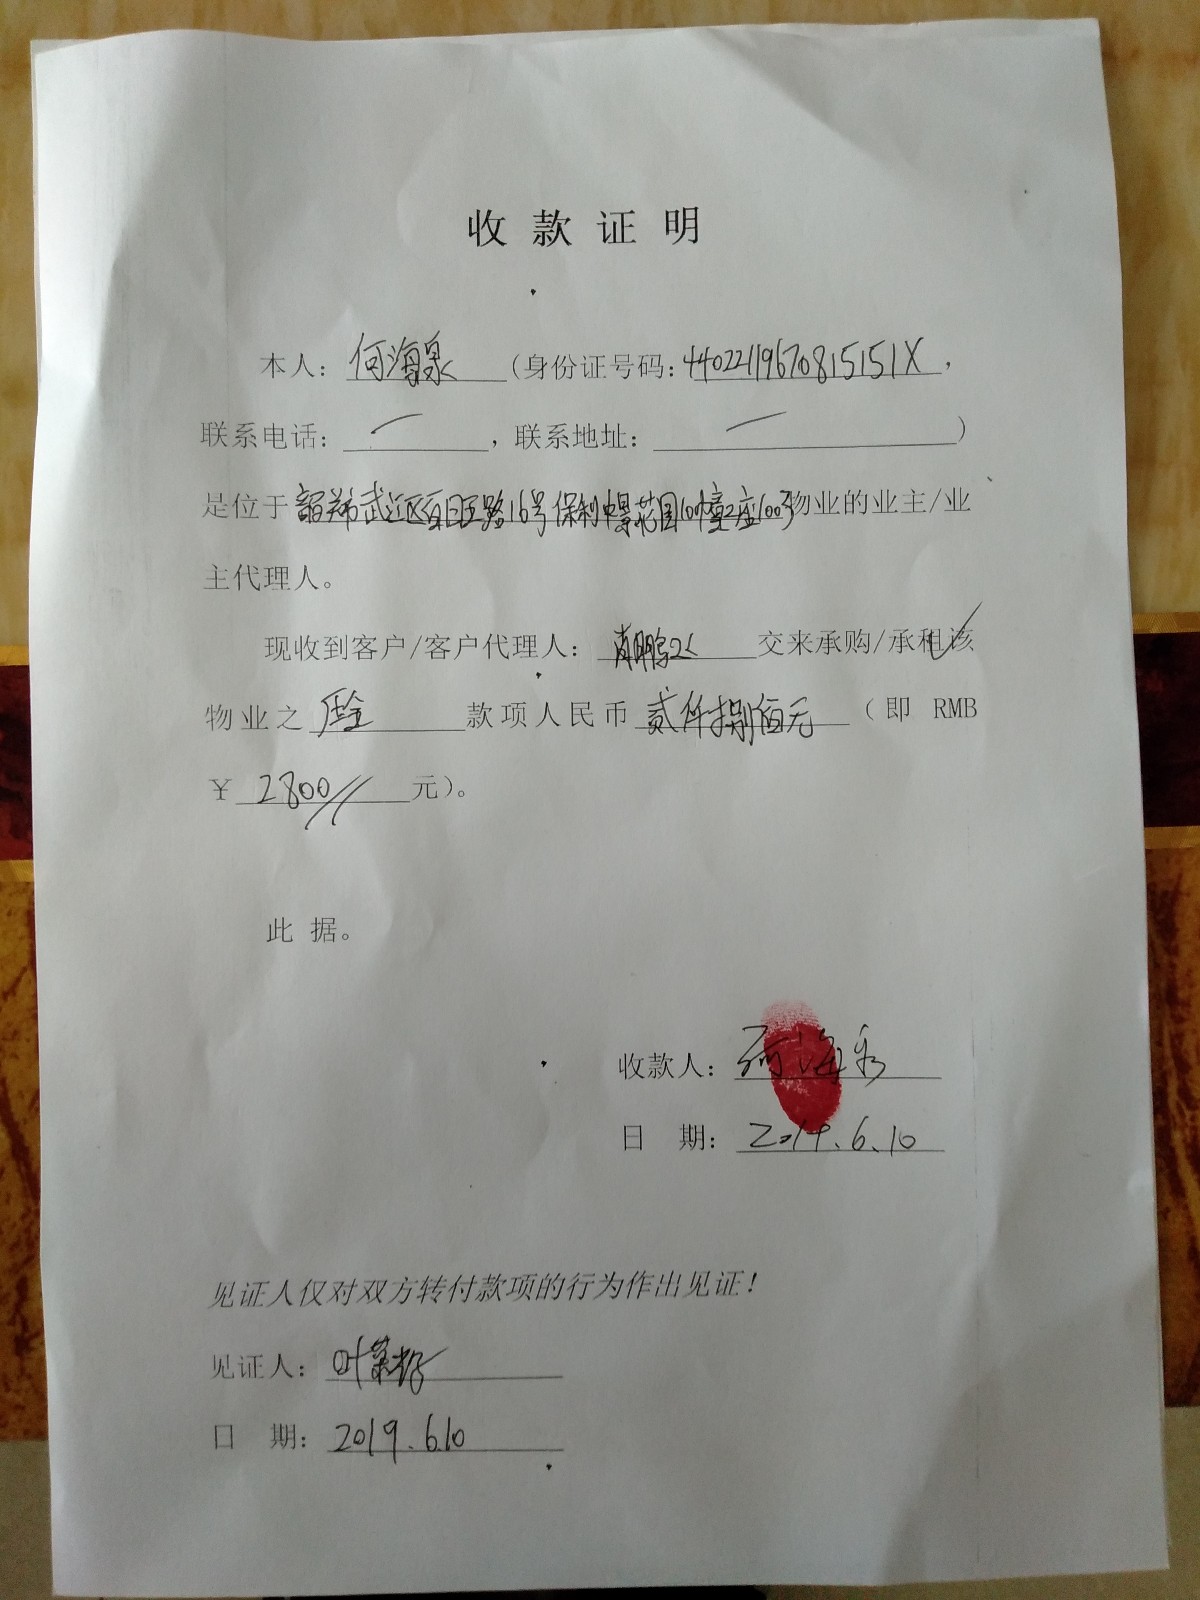 收款证明
本人：何海泉（身份证号码：44022119670815151X，
联系电话：／，联系地址：／）
是位于韶关市武江区百旺路16号保利中景花园10幢2座1003物业的业主/业
主代理人。
现收到客户/客户代理人：肖鹏 交来承购/承租✓该
物业之押金款项人民币贰仟捌佰元（即 RMB
￥2800//元）。
此 据。
收款人：何海
日 期：2019.6.10
见证人仅对双方转付款项的行为作出见证！
见证人：叶
日 期：2019.6.10